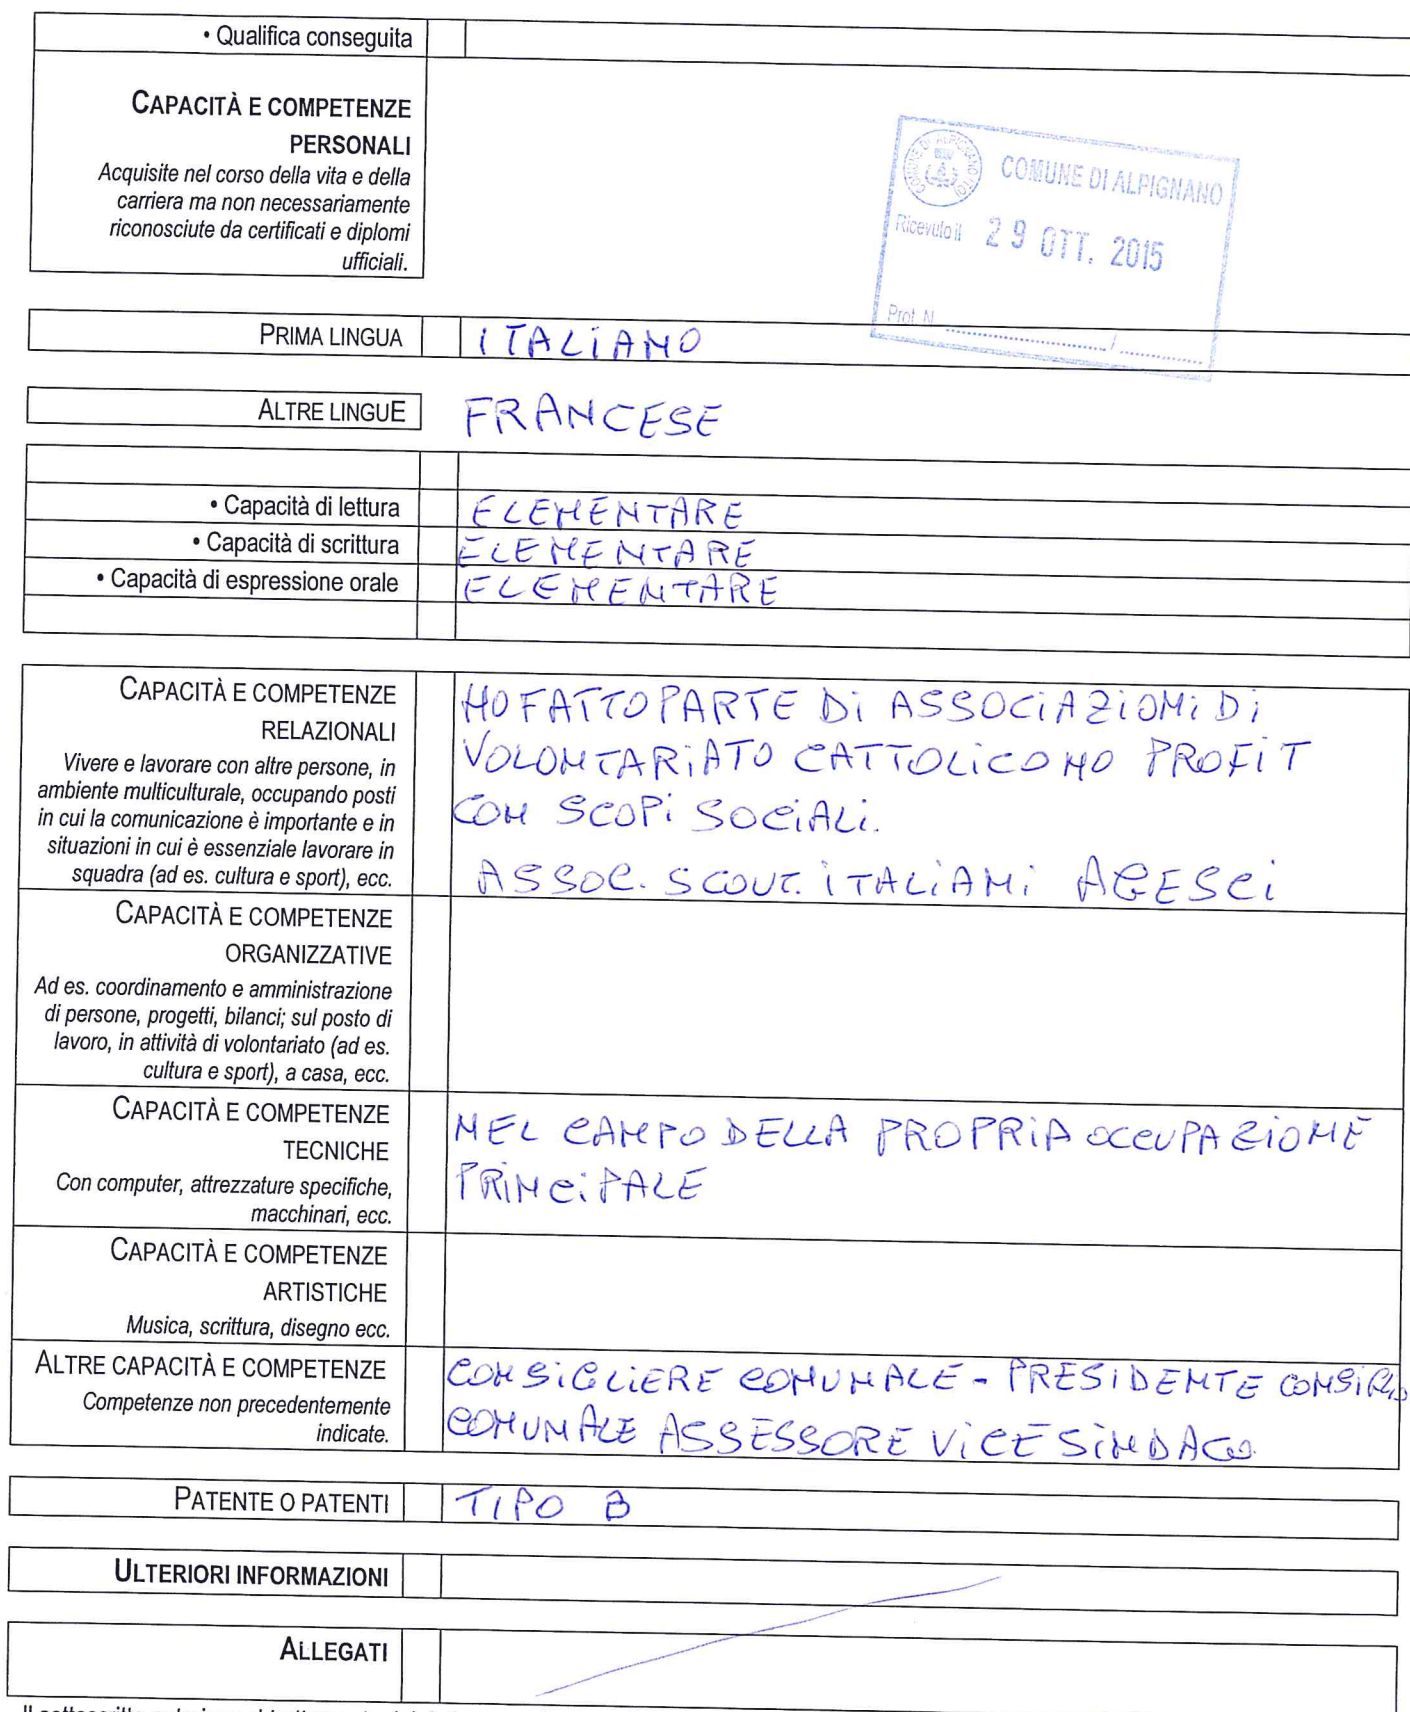 • Qualifica conseguita
CAPACITÀ E COMPETENZE
PERSONALI
Acquisite nel corso della vita e della
carriera ma non necessariamente
riconosciute da certificati e diplomi
ufficiali.
COMUNE DI ALPIGNANO
Ricevuto il 29 OTT. 2015
Prot. N. ........................... / ..............
PRIMA LINGUA ITALIANO
ALTRE LINGUE FRANCESE
• Capacità di lettura ELEMENTARE
• Capacità di scrittura ELEMENTARE
• Capacità di espressione orale ELEMENTARE
CAPACITÀ E COMPETENZE
RELAZIONALI
Vivere e lavorare con altre persone, in
ambiente multiculturale, occupando posti
in cui la comunicazione è importante e in
situazioni in cui è essenziale lavorare in
squadra (ad es. cultura e sport), ecc.
HO FATTO PARTE DI ASSOCIAZIONI DI
VOLONTARIATO CATTOLICO NO PROFIT
CON SCOPI SOCIALI.
ASSOC. SCOUT. ITALIANI AGESCI
CAPACITÀ E COMPETENZE
ORGANIZZATIVE
Ad es. coordinamento e amministrazione
di persone, progetti, bilanci; sul posto di
lavoro, in attività di volontariato (ad es.
cultura e sport), a casa, ecc.
CAPACITÀ E COMPETENZE
TECNICHE
Con computer, attrezzature specifiche,
macchinari, ecc.
NEL CAMPO DELLA PROPRIA OCCUPAZIONE
PRINCIPALE
CAPACITÀ E COMPETENZE
ARTISTICHE
Musica, scrittura, disegno ecc.
ALTRE CAPACITÀ E COMPETENZE
Competenze non precedentemente
indicate.
CONSIGLIERE COMUNALE - PRESIDENTE CONSIGLIO
COMUNALE ASSESSORE VICE SINDACO
PATENTE O PATENTI TIPO B
ULTERIORI INFORMAZIONI
ALLEGATI